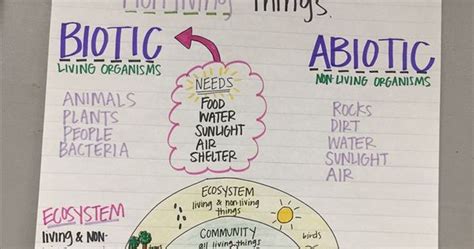 Nonliving Things.
BIOTIC
LIVING ORGANISMS
ANIMALS
PLANTS
PEOPLE
BACTERIA
NEEDS
FOOD
WATER
SUNLIGHT
AIR
SHELTER
ABIOTIC
NON-LIVING ORGANISMS
ROCKS
DIRT
WATER
SUNLIGHT
AIR
ECOSYSTEM
living & NON-
ECOSYSTEM
living & non-living
things
COMMUNITY
all living things
birds